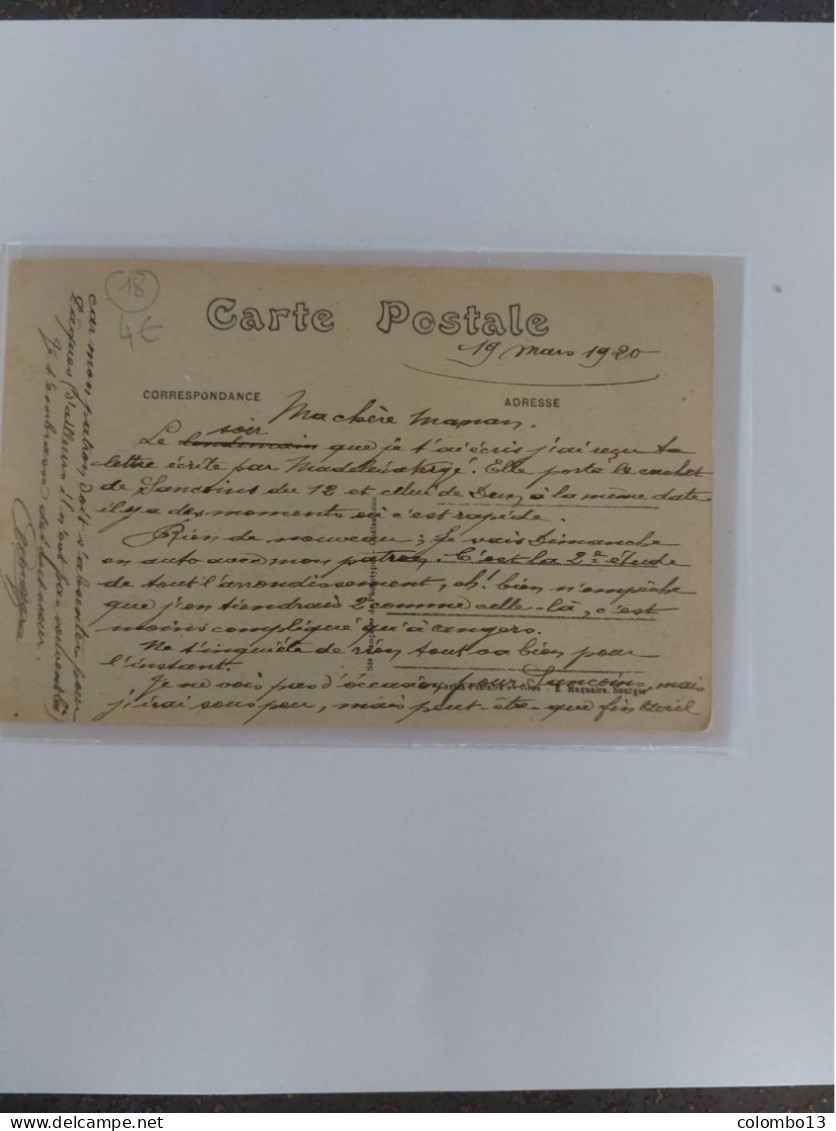 18
4€
Carte Postale
19 mars 1920
CORRESPONDANCE
ADRESSE
Ma chère maman.
soir
Le lendemain que je t'ai écris j'ai reçu ta
lettre écrite par Madeleine. Elle porte le cachet
de Sancoins du 12 et celui de Dun, à la même date
il y a des moments où c'est rapide.
Rien de nouveau ; Je vais Dimanche
en auto avec mon patron. C'est la 2e étude
de tout l'arrondissement, eh! bien n'empêche
que j'en tiendrais 2 comme celle-là, c'est
moins compliqué qu'à angers.
Ne t'inquiète de rien tout va bien pour
l'instant.
Je ne vois pas d'occasion pour Sancoins, mais
j'irai sous peu, mais peut-être que fin
car mon patron doit s'absenter pour
Pâques (D'ailleurs il n'est pas souvent là)
Je t'embrasse de
E. Maquaire, Bourges
colombo13